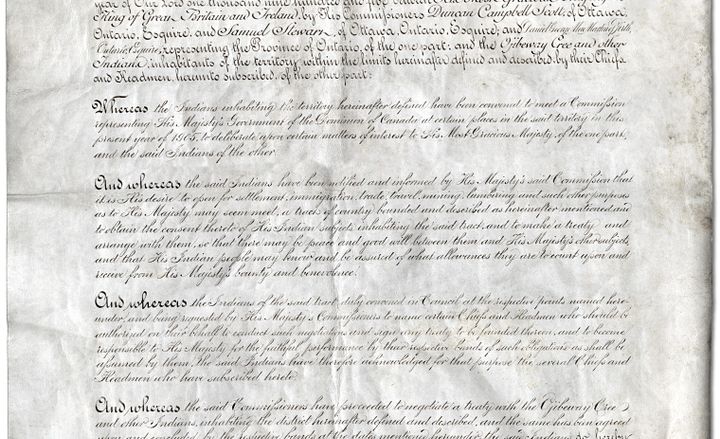 year of Our Lord one thousand nine hundred and five between His Most Gracious
King of Great Britain and Ireland, by His Commissioners Duncan Campbell Scott, of Ottawa,
Ontario, Esquire, and Samuel Stewart, of Ottawa, Ontario, Esquire; and Daniel George MacMartin, of Perth,
Ontario, Esquire, representing the Province of Ontario, of the one part; and the Ojibeway Cree and other
Indians, inhabitants of the territory, within the limits hereinafter defined and described, by their Chiefs
and Headmen, hereunto subscribed, of the other part:
Whereas the Indians inhabiting the territory hereinafter defined have been convened to meet a Commission
representing His Majesty's Government of the Dominion of Canada at certain places in the said territory in this
present year of 1905, to deliberate upon certain matters of interest to His Most Gracious Majesty, of the one part,
and the said Indians of the other.
And whereas the said Indians have been notified and informed by His Majesty's said Commission that
it is His desire to open for settlement, immigration, trade, travel, mining, lumbering and such other purposes
as to His Majesty may seem meet, a tract of country bounded and described as hereinafter mentioned, and
to obtain the consent thereto of His Indian subjects inhabiting the said tract, and to make a treaty and
arrange with them, so that there may be peace and good will between them and His Majesty's other subjects,
and that His Indian people may know and be assured of what allowances they are to count upon and
receive from His Majesty's bounty and benevolence.
And whereas the Indians of the said tract, duly convened in Council at the respective points named here-
under, and being requested by His Majesty's Commissioners to name certain Chiefs and Headmen who should be
authorized on their behalf to conduct such negotiations and sign any treaty to be founded thereon, and to become
responsible to His Majesty for the faithful performance by their respective bands of such obligations as shall be
assumed by them, the said Indians have therefore acknowledged for that purpose the several Chiefs and
Headmen who have subscribed hereto.
And whereas the said Commissioners have proceeded to negotiate a treaty with the Ojibeway Cree
and other Indians, inhabiting the district hereinafter defined and described, and the same has been agreed
upon and concluded by the respective bands at the dates mentioned hereunder, the said Indians do